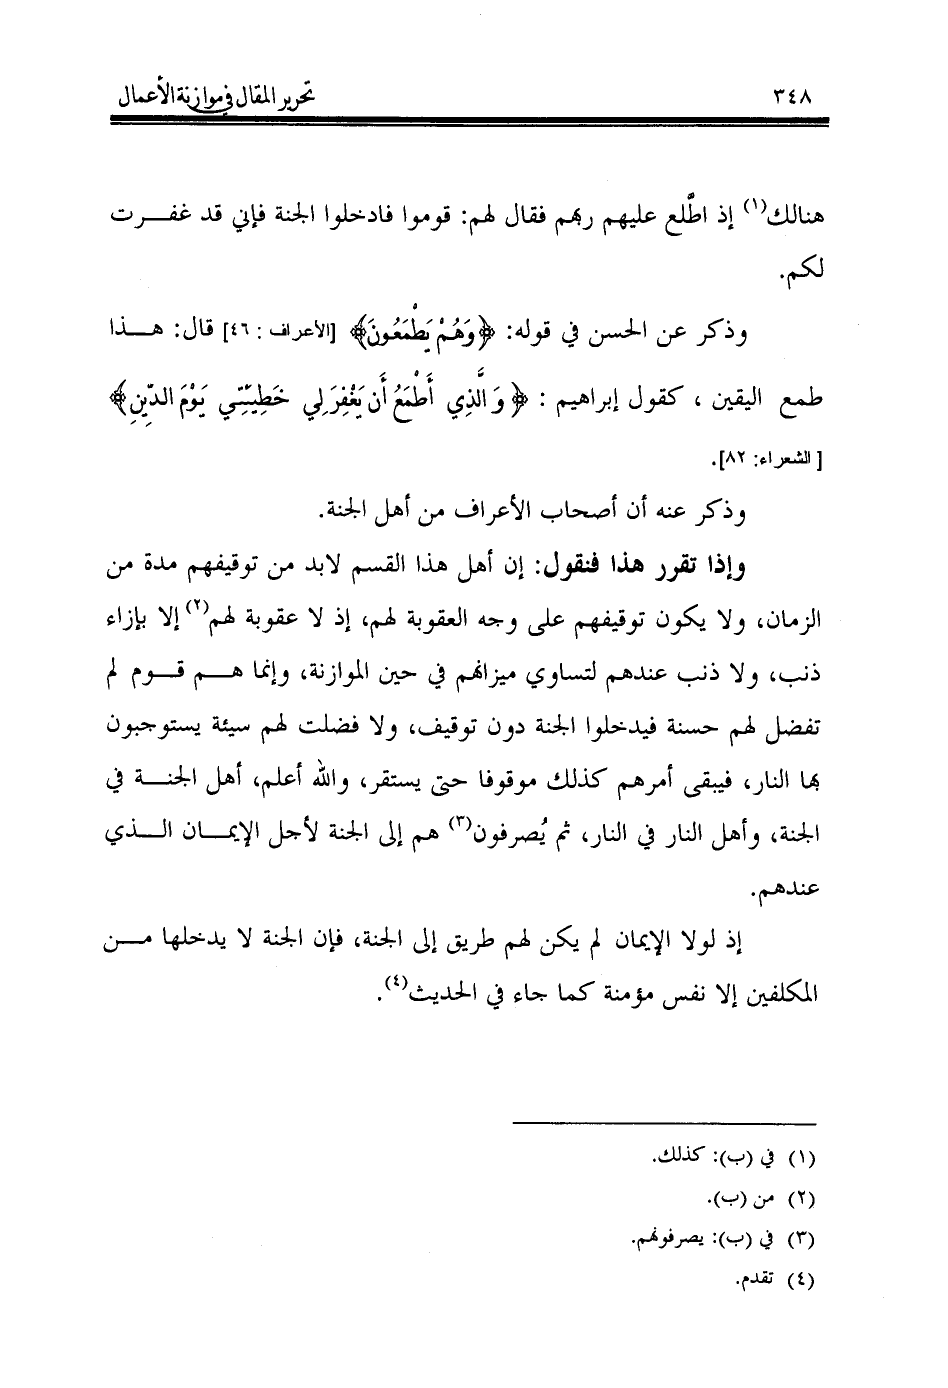 ٣٤٨
تحرير المقال في موازنة الأعمال
هنالك(١) إذ اطَّلع عليهم ربهم فقال لهم: قوموا فادخلوا الجنة فإني قد غفرت
لكم.
وذكر عن الحسن في قوله: ﴿وَهُمْ يَطْمَعُونَ﴾ [الأعراف: ٤٦] قال: هذا
طمع اليقين ، كقول إبراهيم : ﴿وَالَّذِي أَطْمَعُ أَن يَغْفِرَ لِي خَطِيئَتِي يَوْمَ الدِّينِ﴾
[الشعراء: ٨٢].
وذكر عنه أن أصحاب الأعراف من أهل الجنة.
وإذا تقرر هذا فنقول: إن أهل هذا القسم لابد من توقيفهم مدة من
الزمان، ولا يكون توقيفهم على وجه العقوبة لهم، إذ لا عقوبة لهم(٢) إلا بإزاء
ذنب، ولا ذنب عندهم لتساوي ميزانهم في حين الموازنة، وإنما هم قوم لم
تفضل لهم حسنة فيدخلوا الجنة دون توقيف، ولا فضلت لهم سيئة يستوجبون
بها النار، فيبقى أمرهم كذلك موقوفا حتى يستقر، والله أعلم، أهل الجنة في
الجنة، وأهل النار في النار، ثم يُصرفون(٣) هم إلى الجنة لأجل الإيمان الذي
عندهم.
إذ لولا الإيمان لم يكن لهم طريق إلى الجنة، فإن الجنة لا يدخلها من
المكلفين إلا نفس مؤمنة كما جاء في الحديث(٤).
(١) في (ب): كذلك.
(٢) من (ب).
(٣) في (ب): يصرفونهم.
(٤) تقدم.